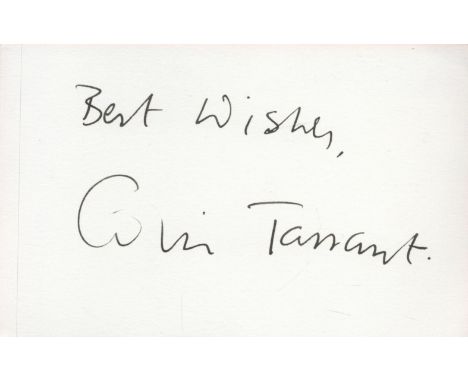 Best Wishes,
Colin Tarrant.